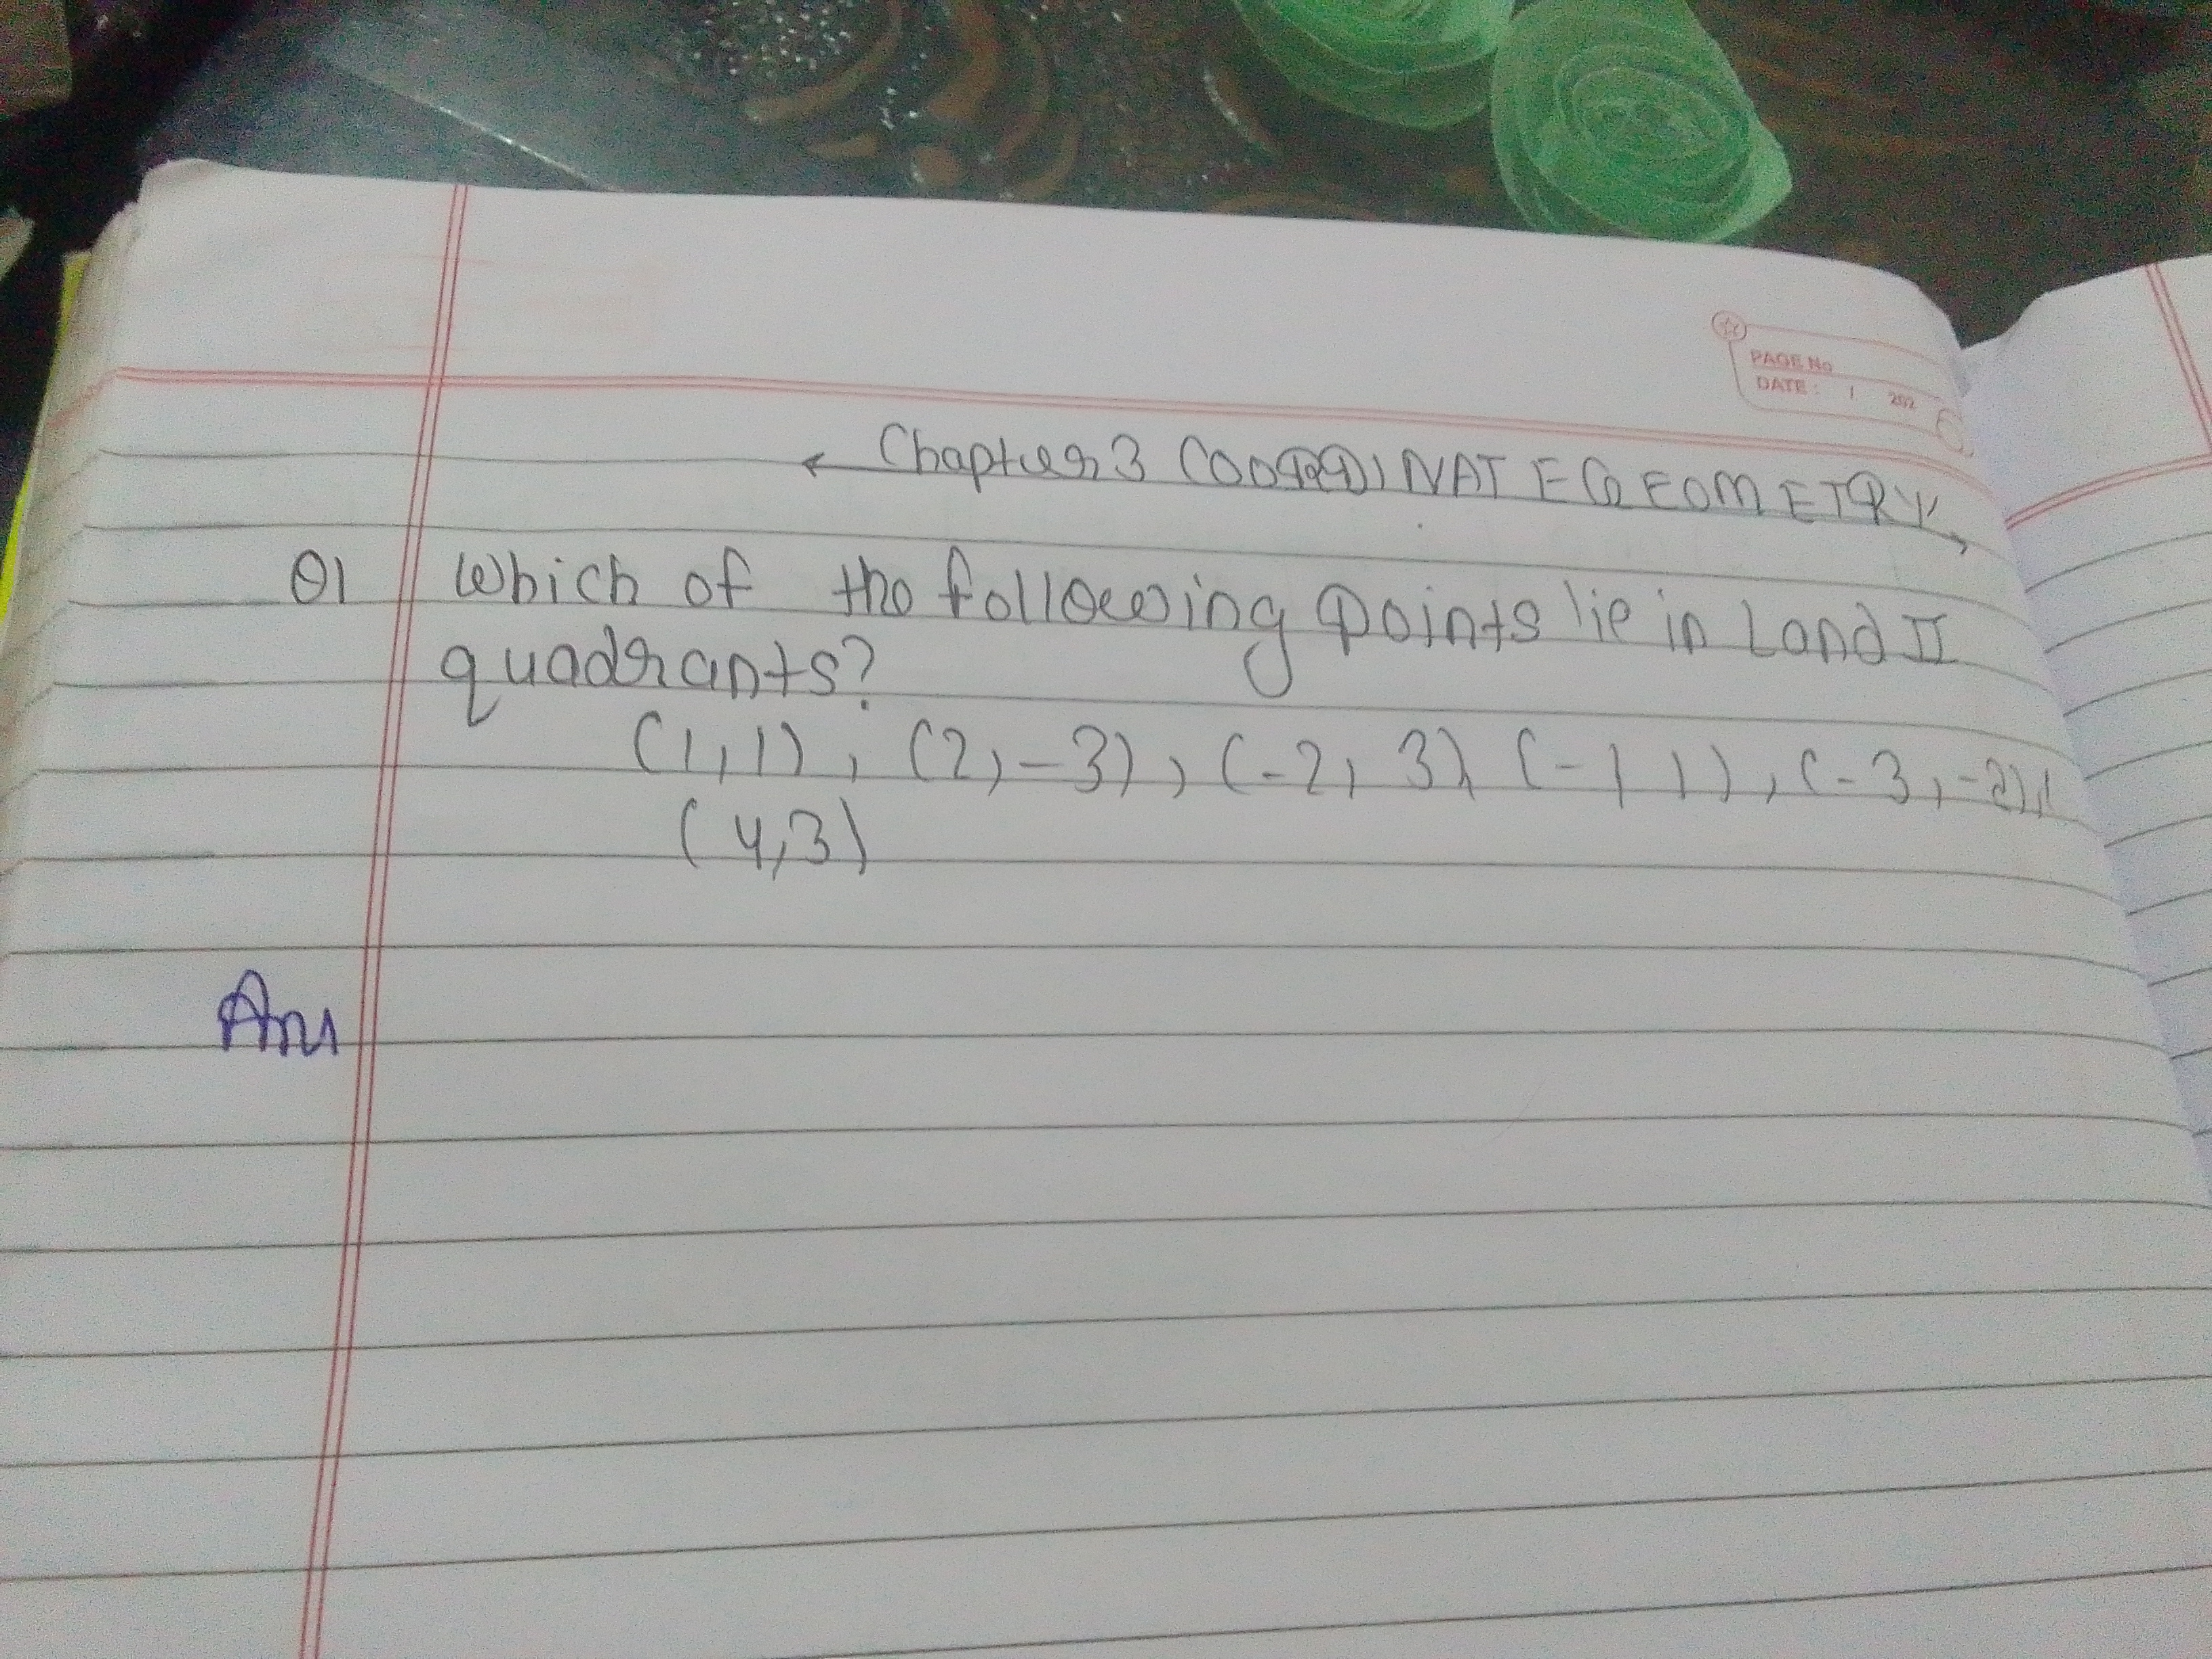 PAGE No
DATE : 1 202 6
Chapter 3 COORDINATE GEOMETRY
Q1 Which of the following points lie in I and II
quadrants?
(1,1), (2,-3), (-2, 3), (-1 1), (-3,-2),
(4,3)
Ans